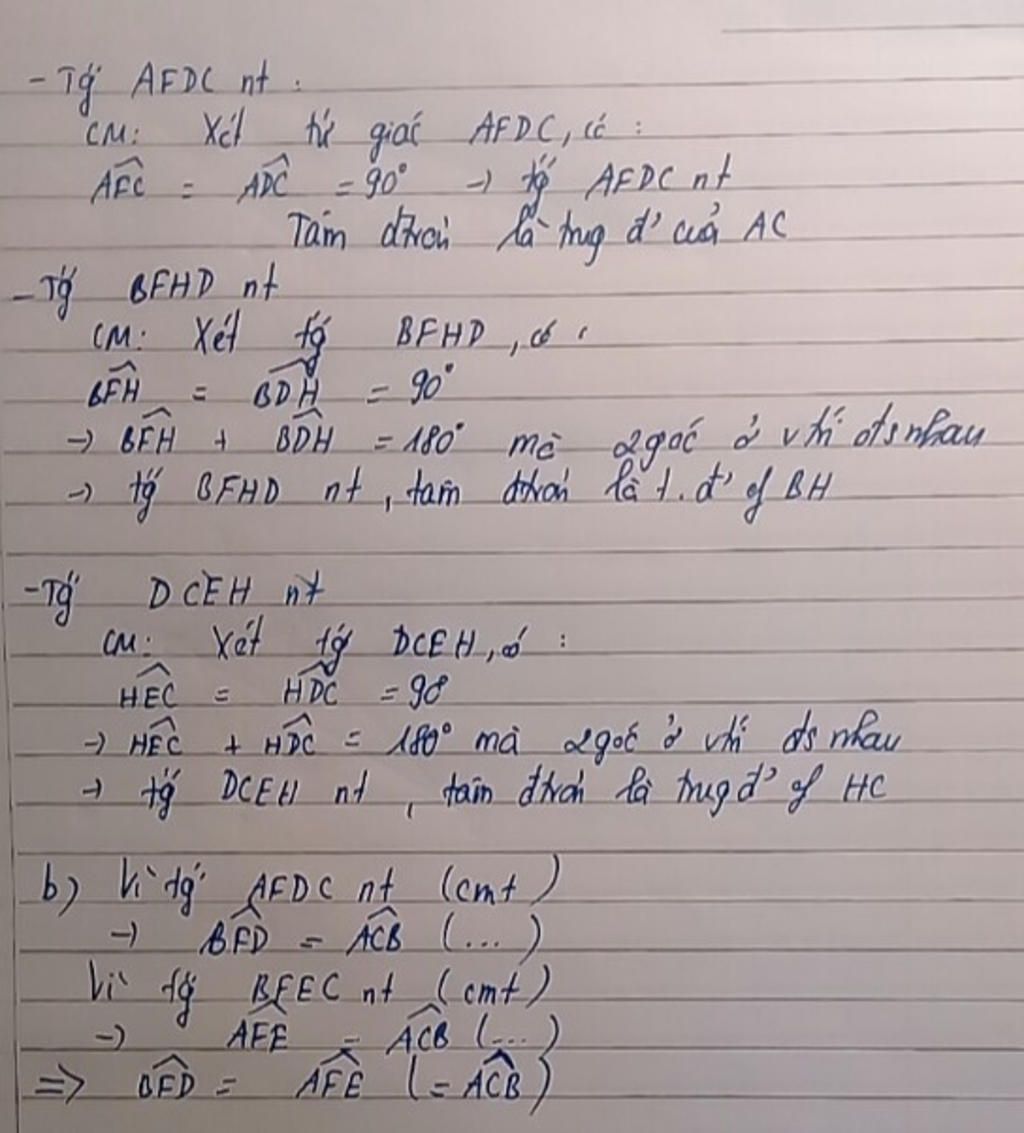 - Tg AFDC nt :
CM: Xét tứ giác AFDC, có :
AFC = ADC = 90° → tg AFDC nt
Tâm đtròn là trug đ' của AC
- Tg BFHD nt
CM: Xét tg BFHD, có :
BFH = BDH = 90°
→ BFH + BDH = 180° mà 2góc ở vtrí đs nhau
→ tg BFHD nt, tâm đtròn là t. đ' of BH
- Tg DCEH nt
CM: Xét tg DCEH, có :
HEC = HDC = 90
→ HEC + HDC = 180° mà 2góc ở vtrí đs nhau
→ tg DCEH nt, tâm đtròn là trug đ' of HC
b) Vì tg AFDC nt (cmt)
→ BFD = ACB (...)
Vì tg BFEC nt (cmt)
→ AFE = ACB (...)
=> BFD = AFE (= ACB)